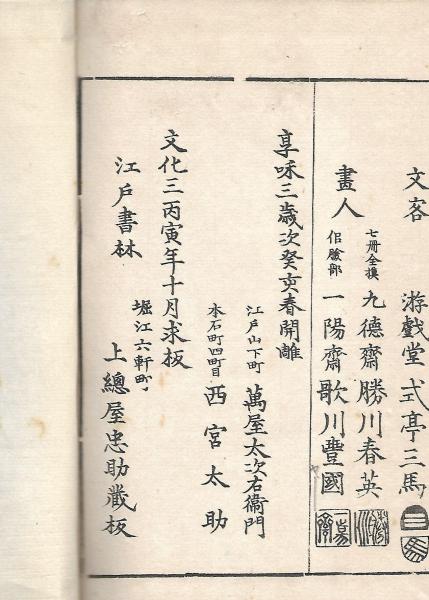 文客 游戯堂式亭三馬
畫人
七冊全摸 九德齋勝川春英
一陽齋歌川豐國
享咊三歳次癸亥春開雕
江戸山下町 萬屋太次右衞門
本石町四町目 西宮太助
文化三丙寅年十月求板
江戸書林
堀江六軒町
上總屋忠助藏板